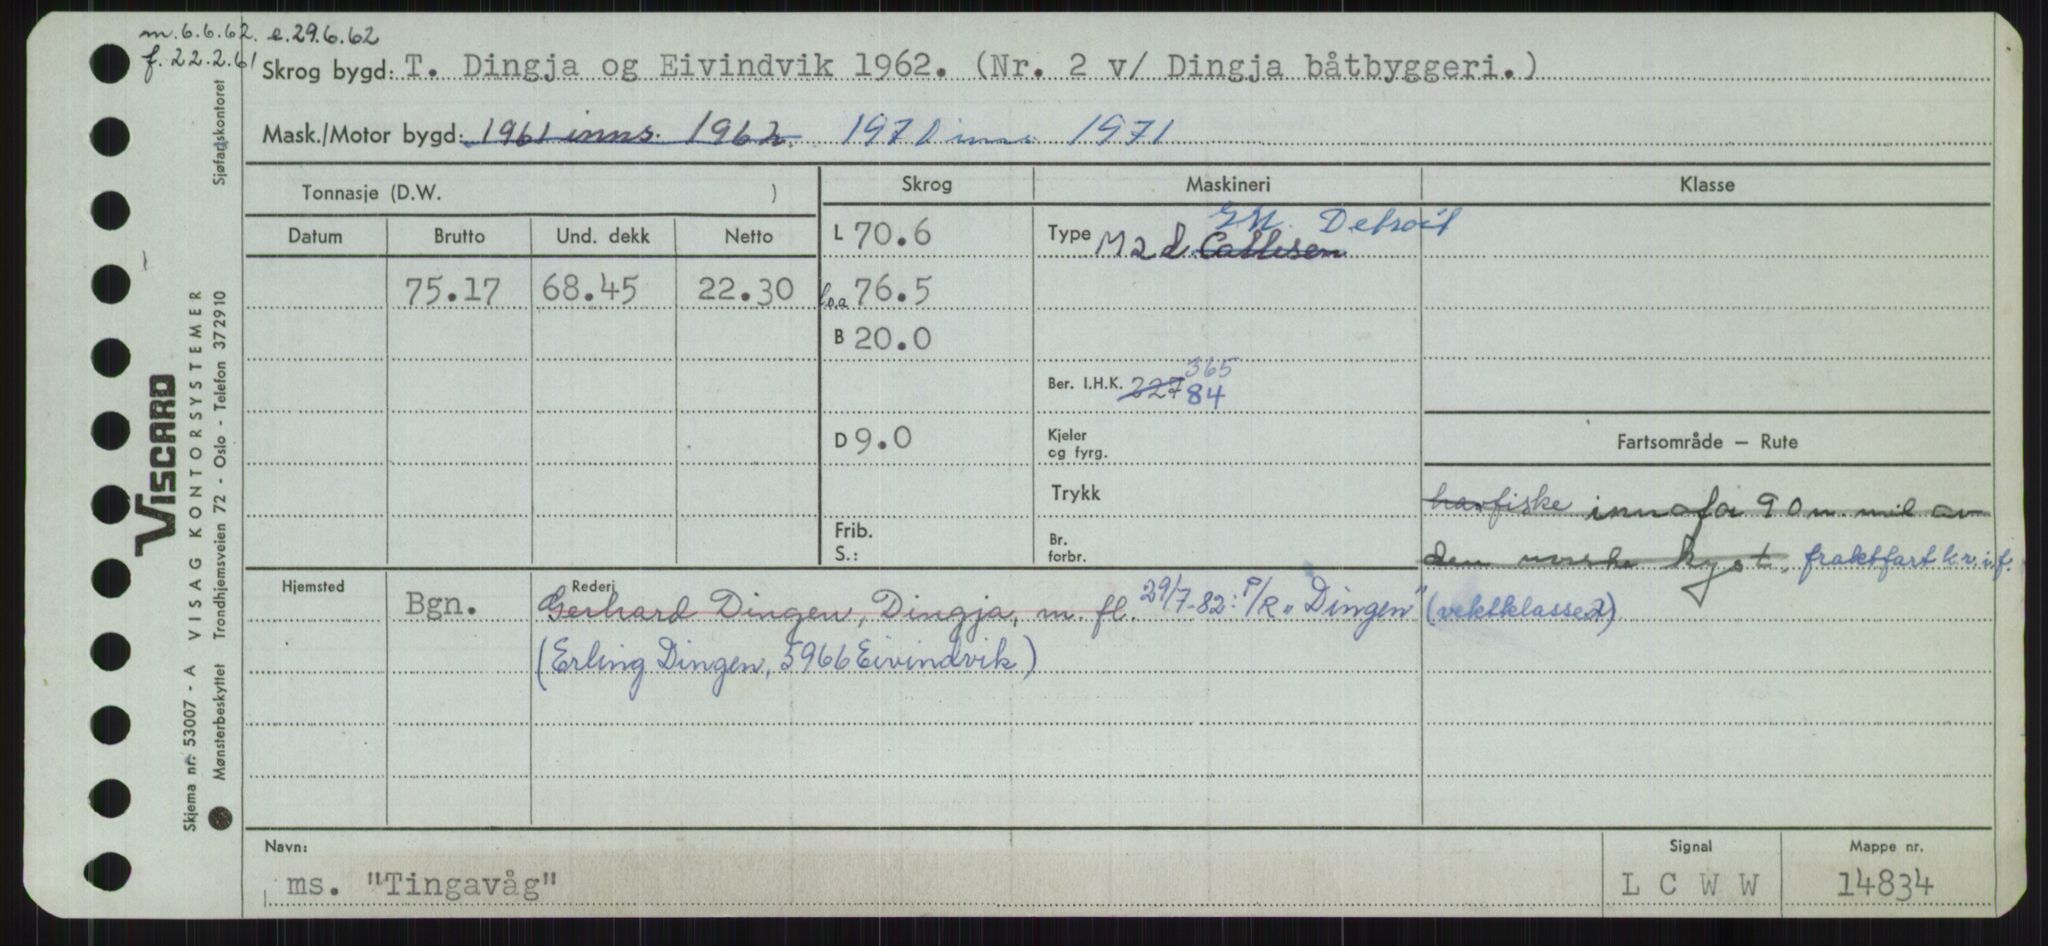 m. 6.6.62. e. 29.6.62
f. 22.2.61
Skrog bygd: T. Dingja og Eivindvik 1962. (Nr. 2 v/ Dingja båtbyggeri.)
Mask./Motor bygd: 1961 inns. 1962. 1971 inns. 1971
Tonnasje (D.W. )
Skrog
Maskineri
Klasse
Datum Brutto Und. dekk Netto
75.17 68.45 22.30
L 70.6
l.o.a 76.5
B 20.0
D 9.0
Frib.
S.:
GM. Detroit
Type M 2 d Callesen
365
Ber. I.H.K. 227 84
Kjeler
og fyrg.
Trykk
Br.
forbr.
Fartsområde — Rute
havfiske innafor 90 n. mil av
den norske kyst. fraktfart k.v.i.f.
(vektklasse 2)
Hjemsted
Rederi
Bgn.
Gerhard Dingen, Dingja, m. fl. 29/7-82: P/R "Dingen"
(Erling Dingen, 5966 Eivindvik)
Navn:
ms. "Tingavåg"
Signal
L C W W
Mappe nr.
14834
Sjøfartskontoret
VISCARD
VISAG KONTORSYSTEMER
Trondhjemsveien 72 - Oslo - Telefon 372910
Skjema nr. 53007 - A
Mønsterbeskyttet